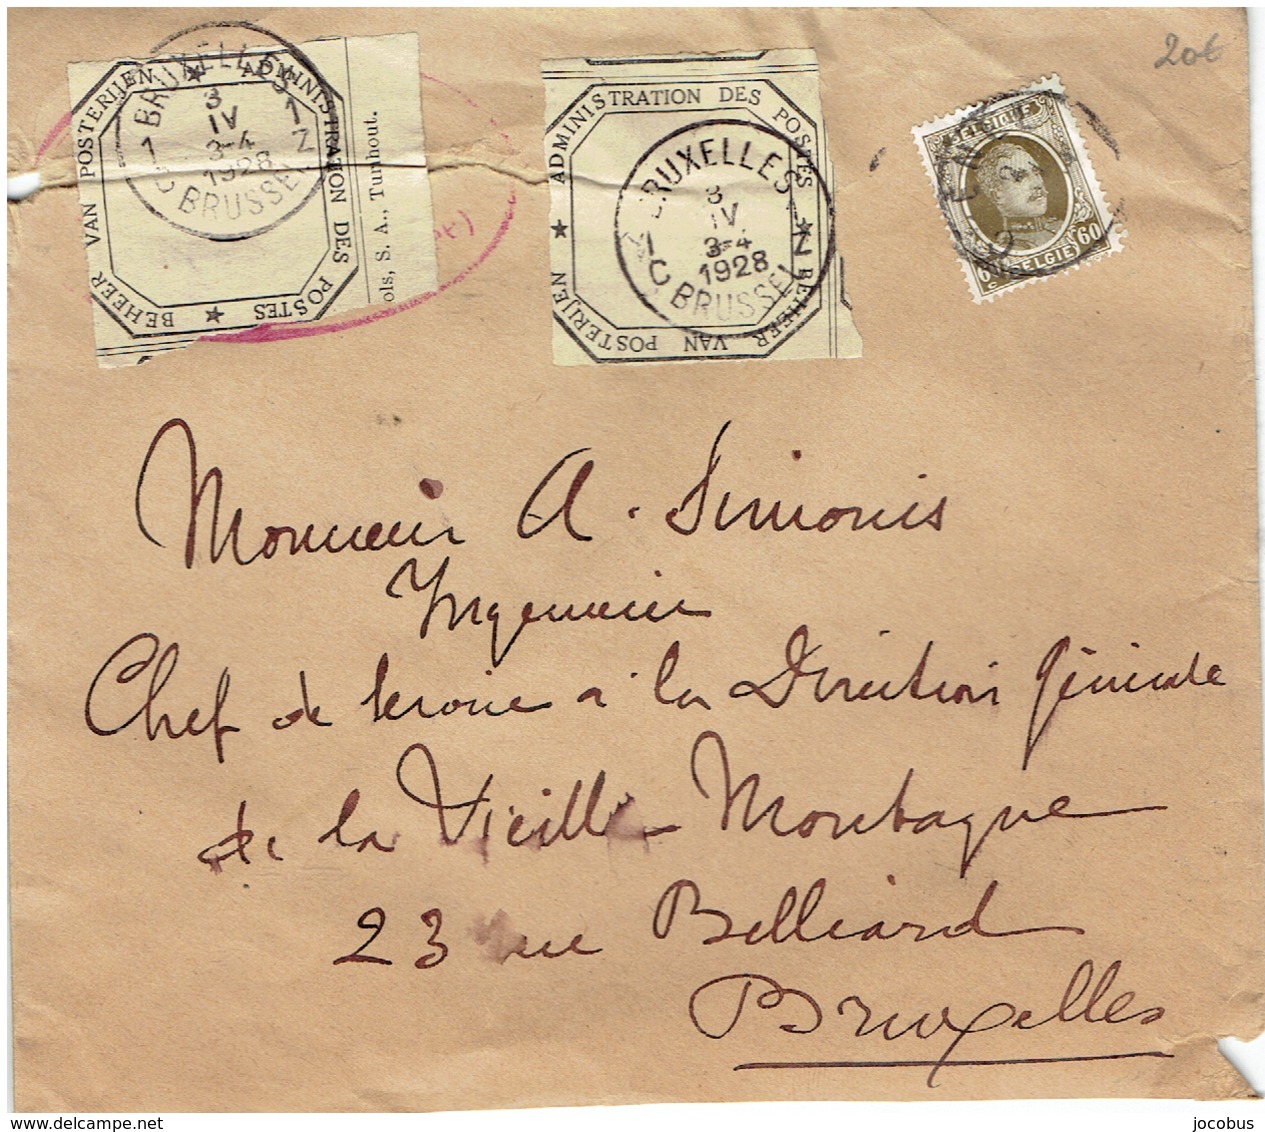 20€
BRUXELLES 1
3
IV
3-4
1928
1C BRUSSEL
ADMINISTRATION DES POSTES ★ BEHEER VAN POSTERIJEN ★
ols, S. A., Turnhout.
ADMINISTRATION DES POSTES ★ BEHEER VAN POSTERIJEN ★
BRUXELLES
3
IV
3-4
1928
1C BRUSSEL
BELGIQUE
60
(BELGIE)
Monsieur A. Simonis
Ingénieur
Chef de service à la Direction Générale
de la Vieille-Montagne
23 rue Belliard
Bruxelles
www.delcampe.net
jocobus